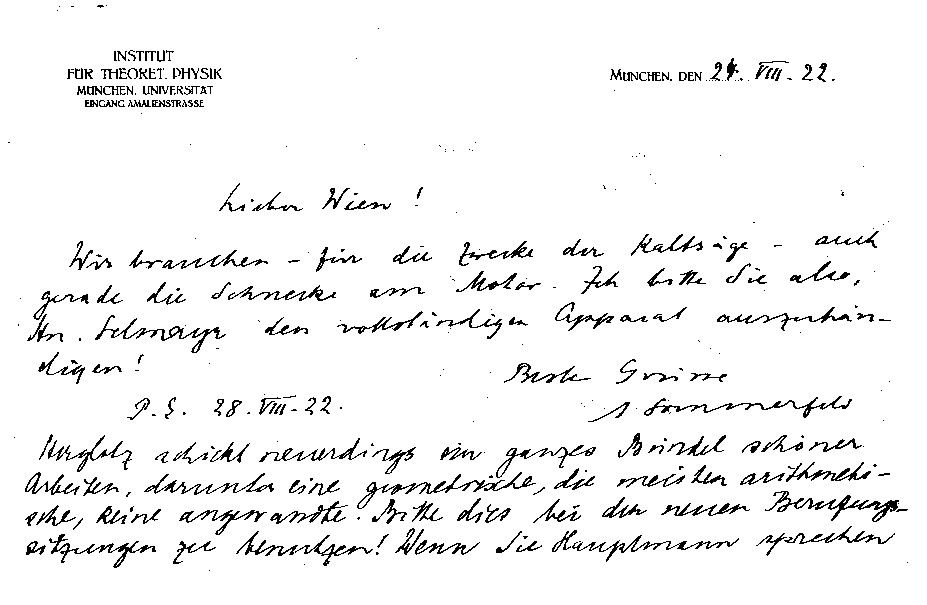 INSTITUT
FÜR THEORET. PHYSIK
MÜNCHEN, UNIVERSITÄT
EINGANG AMALIENSTRASSE
MÜNCHEN, DEN 24. VIII. 22.
Lieber Wien!
Wir brauchen – für die Zwecke der Kaltsäge – auch
gerade die Schnecke am Motor. Ich bitte Sie also,
Hn. Selmayr den vollständigen Apparat auszuhän-
digen!
Beste Grüsse
A Sommerfeld
P.S. 28. VIII. 22.
Herglotz schickt neuerdings ein ganzes Bündel schöner
Arbeiten, darunter eine geometrische, die meisten arithmeti-
sche, keine angewandte. Bitte dies bei den neuen Berufungs-
sitzungen zu benutzen! Wenn Sie Hauptmann sprechen